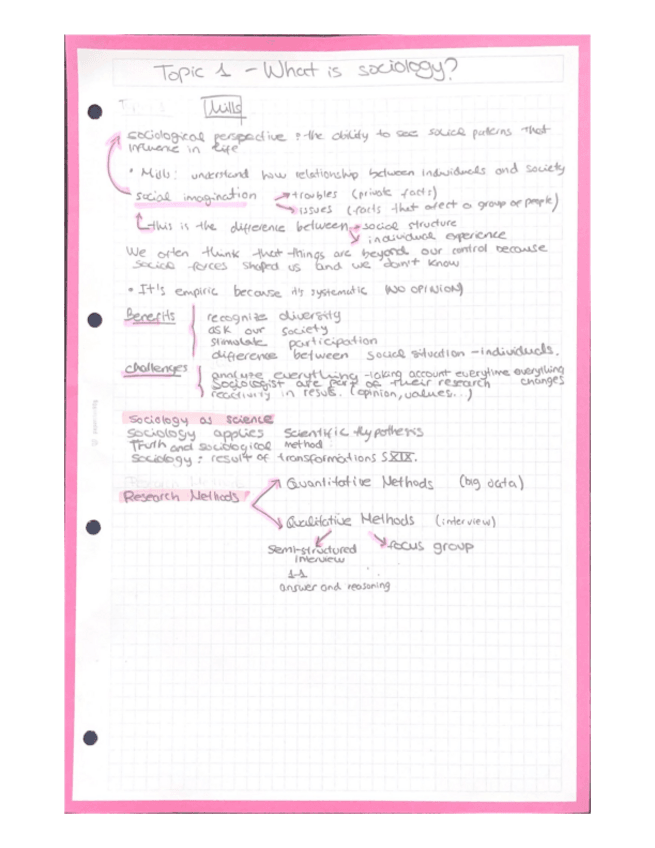 Topic 1 - What is sociology?
Mills
sociological perspective : the ability to see social paterns that
influence in life
• Mills: understand how relationship between individuals and society
social imagination → troubles (private facts)
→ issues (facts that afect a group of people)
↳ this is the diference between → social structure
→ individual experience
We often think that things are beyond our control because
social forces shaped us and we don't know
• It's empiric because it's systematic (NO OPINION)
Benefits
recognize diversity
ask our society
stimulate participation
difference between social situation - individuals.
challenges
analyze everything - taking account everytime everything
changes
sociologist are part of their research
reactivity in result. (opinion, values...)
Sociology as science
Sociology applies Scientific Hypothesis
Truth and sociological method
Sociology: result of transformations SXIX.
Research Methods
→ Quantitative Methods (big data)
→ Qualitative Methods (interview)
Semi-structured
interview
→ focus group
1-1
answer and reasoning